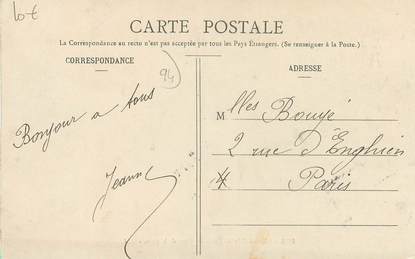 10€
CARTE POSTALE
La Correspondance au recto n'est pas acceptée par tous les Pays Étrangers. (Se renseigner à la Poste.)
CORRESPONDANCE
94
ADRESSE
Bonjour a tous
Jeanne
Mlles Bouyé
2 rue d'Enghien
Paris